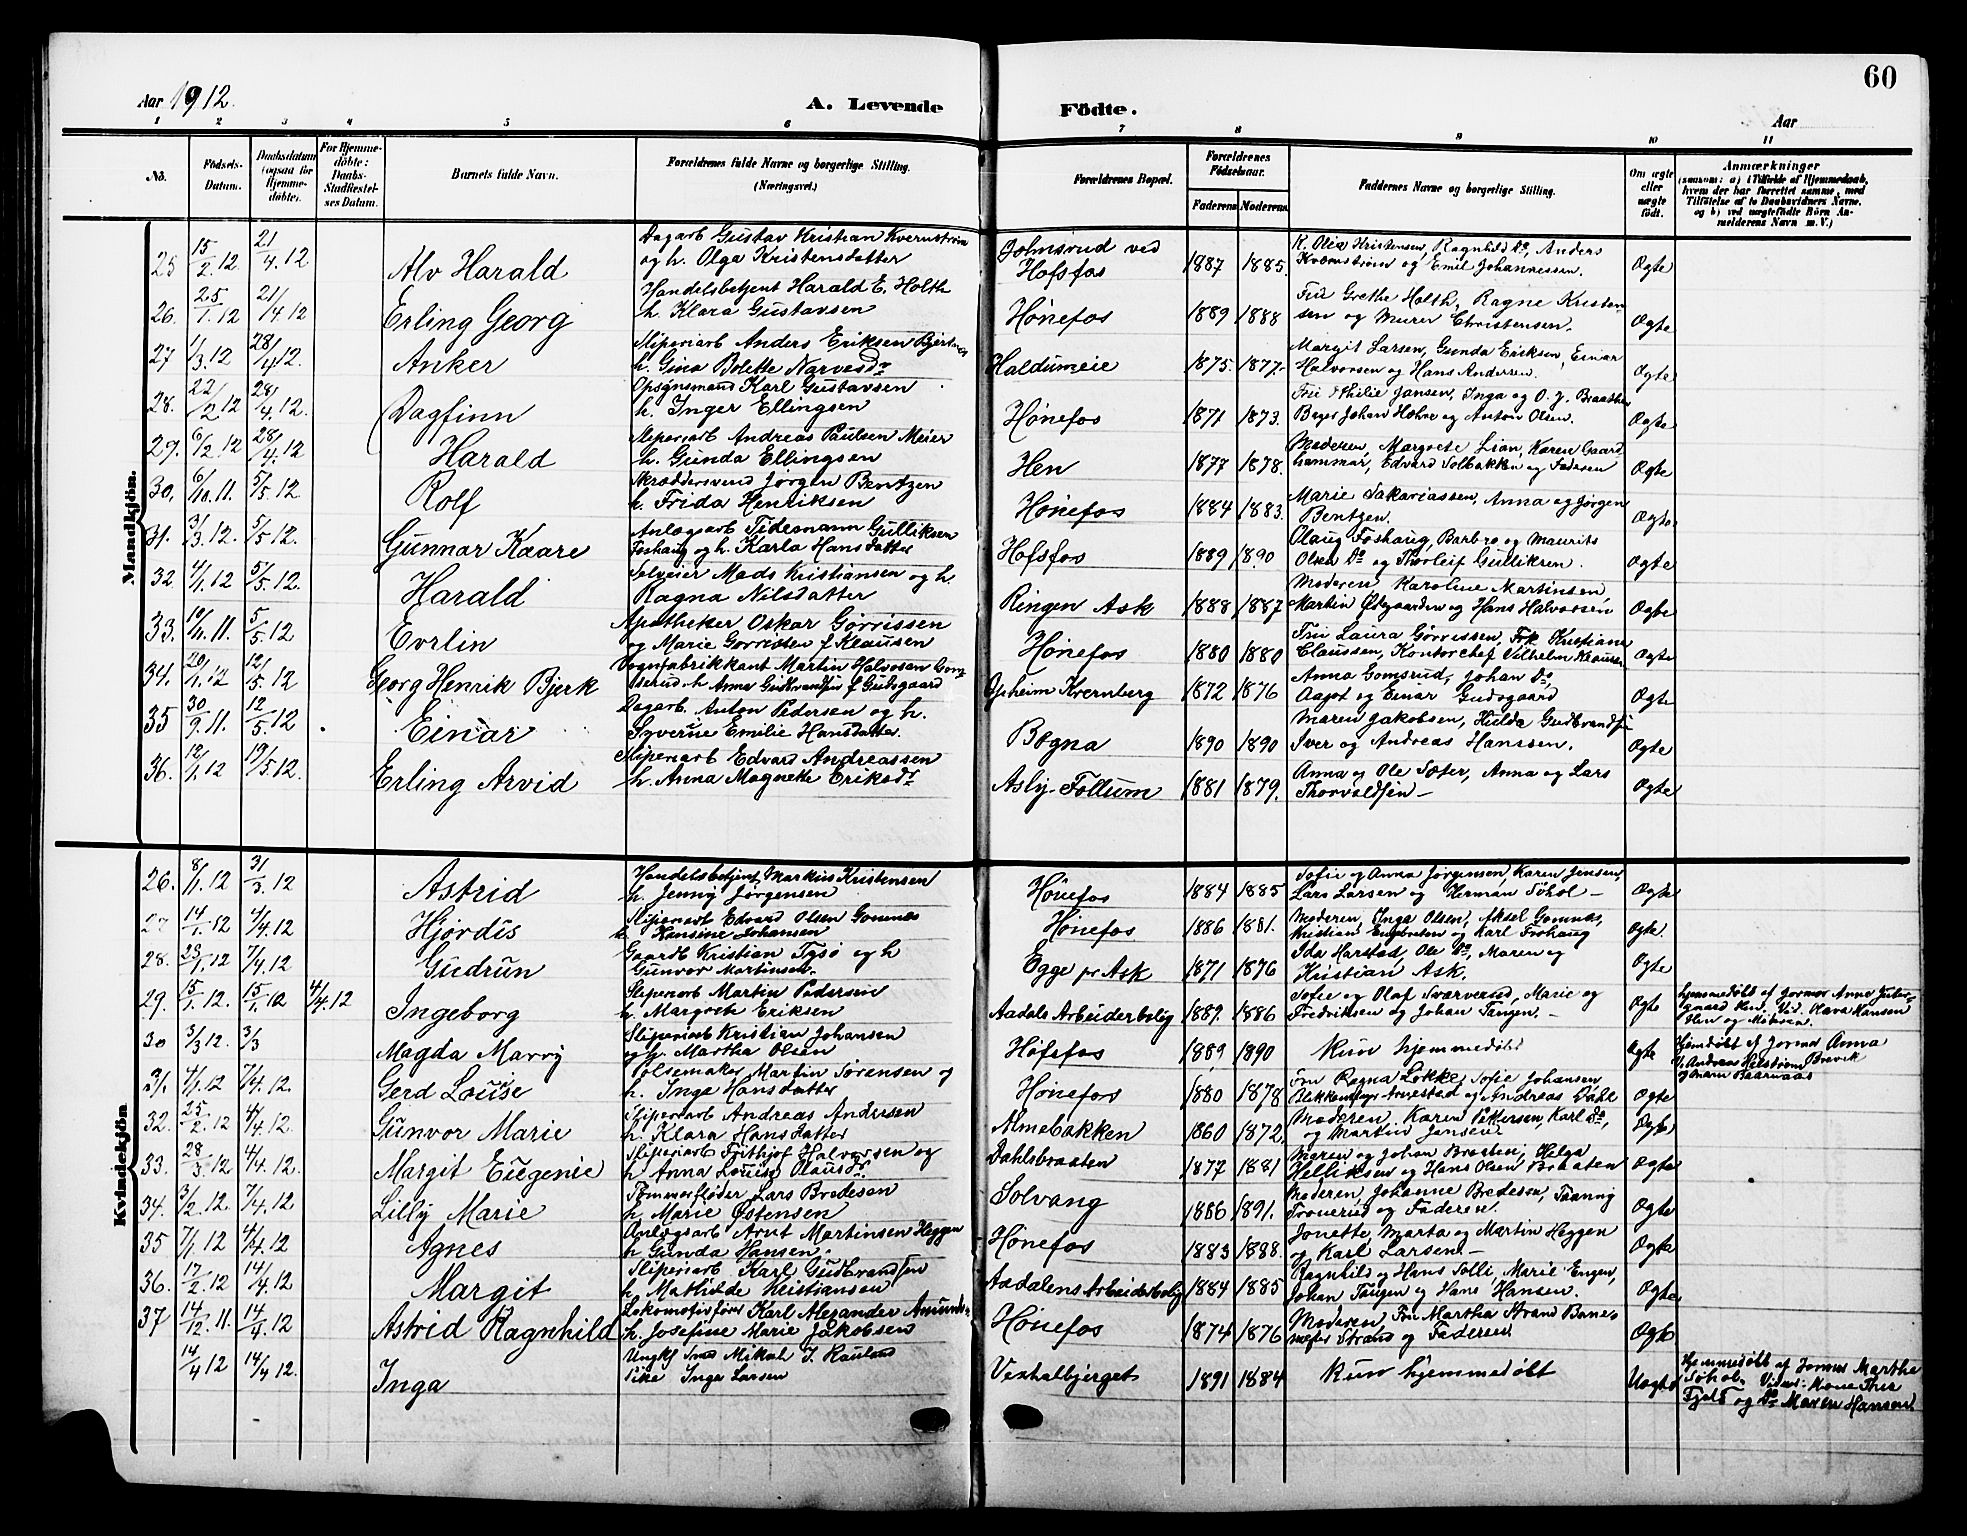 Aar 1912.
A. Levende Födte.
60
Aar
1 2 3 4 5 6 7 8 9 10 11
No.
Födsels-Datum.
Daabsdatum (ogsaa for Hjemme-döbte).
For Hjemme-döbte: Daabs-Stadfæstel-ses Datum.
Barnets fulde Navn.
Forældrenes fulde Navne og borgerlige Stilling. (Næringsvei.)
Forældrenes Bopæl.
Forældrenes Födselsaar.
Faderens Moderens
Faddernes Navne og borgerlige Stilling.
Om ægte eller uægte födt.
Anmærkninger (saasom: a) i Tilfælde af Hjemmedaab, hvem der har forrettet samme, med Tilföielse af to Daabsvidners Navne, og b) ved uægtefödte Börn An-melderens Navn m. V.)
Mandkjön.
25 15/2 12 21/4 12 Alv Harald Dagarb Gustav Kristian Kvernstrøm og h. Olga Kristensdatter Hofsfos 1887 1885. K. Olea Kristensen, Ragnhild Do, Anders Kvernstrøm og Emil Johannessen. Ægte
26. 25/1 12 21/4 12 Erling Georg Handelsbetjent Harald E. Holth h. Klara Gustavsen Hønefos 1889 1888 Fru Grethe Holth, Ragne Kristensen og Murer Christensen. Ægte
27 1/3 12 28/4 12. Anker Sliperiarb Anders Eriksen Bjertnes h. Gina Bolette Narvesdr Haldumeie 1875. 1877. Margit Larsen, Gunda Eriksen, Einar Halvorsen og Hans Andersen. Ægte
28. 22/2 12 28/4 12. Dagfinn Opsynsmand Karl Gustavsen h. Inger Ellingsen Hønefos 1871 1873. Fru Jansen, Inga og O. J. Braathen Johan og Anton Olsen. Ægte
29. 6/2 12 28/4 12 Harald Sliperiarb Andreas Paulsen Meier h. Gunda Ellingsen Hen 1877 1878. Moderen, Margrete Lian, Karen Gaardhammar, Edvard Solbakken og Faderen Ægte
30. 6/10 11. 5/5 12 Rolf Skræddersvend Jörgen Bentzen h. Frida Henriksen Hønefos 1884 1883. Marie Sakariassen, Anna og Jørgen Bentzen. Ægte
31. 3/3 12. 5/5 12. Gunnar Kaare Anlægsarb Tidemann Gulliksen Foshaug og h. Karla Hansdatter Hofsfos 1889 1890 Olaug Foshaug, Barbro og Maurits Olsen Do og Thorleif Gulliksen. Ægte
32 4/1 12 5/5 12 Harald Selveier Mads Kristiansen og h. Ragna Nilsdatter Ringen Ask 1888 1887 Moderen Karoline Martinsen, Martin Ødegaarden og Hans Halvorsen Ægte
33. 11. 5/5 12 Evrlin Apotheker Oskar Gørrissen og Marie Gørrissen f Klausen Hønefos 1880 1880 Fru Laura Gørrissen, Frk Kristiane Claussen, Kontorchef Vilhelm Klausen Ægte
34. 20/1 12 12/5 12 Georg Henrik Bjerk Vognfabrikkant Martin Halvorsen Gomsrud h Anna Gudbrandsen f Gudsgaard Opheim Kvernberg 1872 1876 Anna Gomsrud, Johan Do, Aagot og Einar Gudsgaard Ægte
35 30/9 11. 12/5 12 Einar Dagarb. Anton Pedersen og h. Syverine Emilie Hansdatter. Bægna 1890 1890 Maren Jakobsen, Hilda Gudbrandsen Iver og Andreas Hanssen. Ægte
36. 12/1 12 19/5 12. Erling Arvid Sliperiarb Edvard Andreassen h. Anna Magnethe Eriksdr Asby-Follum 1881 1879. Anna og Ole Sæter, Anna og Lars Thorvaldsen — Ægte
Kvindekjön
26. 8/1 12 31/3 12 Astrid Handelsbetjent Markus Kristensen h. Jenny Jørgensen Hønefos 1884 1885 Sofie og Anna Jørgensen, Karen Jensen, Lars Larsen og Herman Søhol — Ægte
27 14/1 12 4/4 12 Hjørdis Sliperiarb Edvard Olsen Gomnæs h. Hansine Johansen Hønefos 1886 1881. Moderen, Inga Olsen, Aksel Gomnæs, Kristian Engebreten og Karl Frohaug Ægte.
28. 23/1 12 7/4 12 Gudrun Gaardb Kristian Tysø og h Gunvor Martinsen. Egge pr Ask 1871 1876 Ida Harstad, Ole Do, Maren og Kristian Ask. Ægte
29. 15/1 12. 15/1 12 4/4 12 Ingeborg Sliperiarb Martin Pedersen h. Margrete Eriksen Aadals Arbeiderbolig 1889. 1886 Sofie og Olaf Sværverud, Marie og Fredriksen og Johan Tangen. — Ægte
30 3/3 12. 3/3 Magda Marry Sliperiarb Kristian Johansen og h. Martha Olsen Hofsfos 1889 1890 Kun hjemmedøbt Ægte Hjemdøbt af Jormor Anna
31. 4/1 12 7/4 12. Gerd Louise Pølsemaker Martin Sørensen og h. Inga Hansdatter Hønefos 1880 1878 Fru Ragna Løkke, Sofie Johansen, Arnestad og Andreas Dahl Ægte
32. 25/2 12 4/4 12. Gunvor Marie Sliperiarb Andreas Andresen h. Klara Hansdatter Almebakken 1860 1872, Moderen, Karen Pettersen, Karl Do, og Martin Jensen Ægte
33. 28/3 12 4/4 12. Margit Eugenie Sliperiarb Frithjof Halvorsen og h Anna Lovise Olausdr. Dahlsbraaten 1877 1881 Maren og Johan Braaten, Helga Helliksen og Hans Olsen Braaten Ægte
34. 3/2 12 7/4 12. Lilly Marie Tømmerfløder Lars Bredesen h Marie Østensen Solvang 1886 1891. Moderen, Johanne Bredesen, Faanny Tronerud og Faderen. Ægte
35 7/1 12 4/4 12 Agnes Anlægsarb Arnt Martinsen Heggen h Gunda Hansen. Hønefos 1883 1888. Jonette, Marta og Martin Heggen og Karl Larsen. — Ægte
36. 17/2 12 14/4 12 Margit Sliperiarb Karl Gudbrandsen h Mathilde Kristiansen Aadalens Arbeiderbolig 1884 1885 Ragnhild og Hans Solli, Marie Engen, Johan Tangen og Hans Hansen. Ægte
37 14/12 11. 14/4 12 Astrid Ragnhild Lokomotivfører Karl Alexander Amunds- h. Josefine Marie Jakobsen Hønefos 1874 1876 Moderen, Fru Martha Strand Strand og Faderen Ægte
14/4 12 14/4 12. Inga Ungkl Mikal J. Pike Inga Larsen Vestalbjerget 1891 1884 Kun hjemmedøbt Uægte Hjemmedøbt af Jormor Marthe Fjeld og Do Maren Hansen